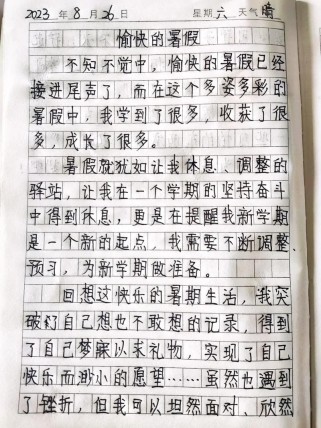 2023年8月26日 星期六 天气晴
愉快的暑假
不知不觉中，愉快的暑假已经
接进尾声了，而在这个多姿多彩的
暑假中，我学到了很多，收获了很
多，成长了很多。
暑假就犹如让我休息、调整的
驿站，让我在一个学期的坚持奋斗
中得到休息，更是在提醒我新学期
是一个新的起点，我需要不断调整、
预习，为新学期做准备。
回想这快乐的暑期生活，我突
破了自己想也不敢想的记录，得到
了自己梦寐以求礼物，实现了自己
快乐而渺小的愿望……虽然也遇到
了挫折，但我可以坦然面对、欣然